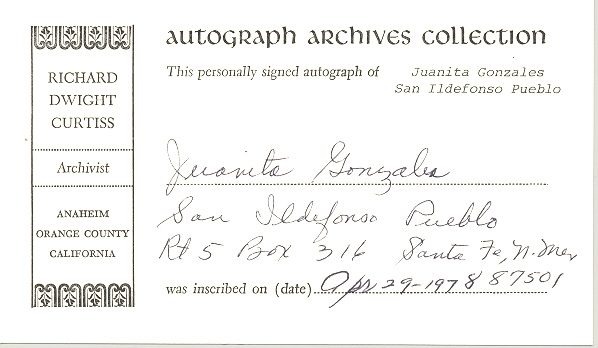 RICHARD
DWIGHT
CURTISS
Archivist
ANAHEIM
ORANGE COUNTY
CALIFORNIA
AUTOGRAPH ARCHIVES COLLECTION
This personally signed autograph of Juanita Gonzales
San Ildefonso Pueblo
Juanita Gonzales
San Ildefonso Pueblo
Rt 5 Box 316 Santa Fe, N. Mex
87501
was inscribed on (date) Apr 29-1978